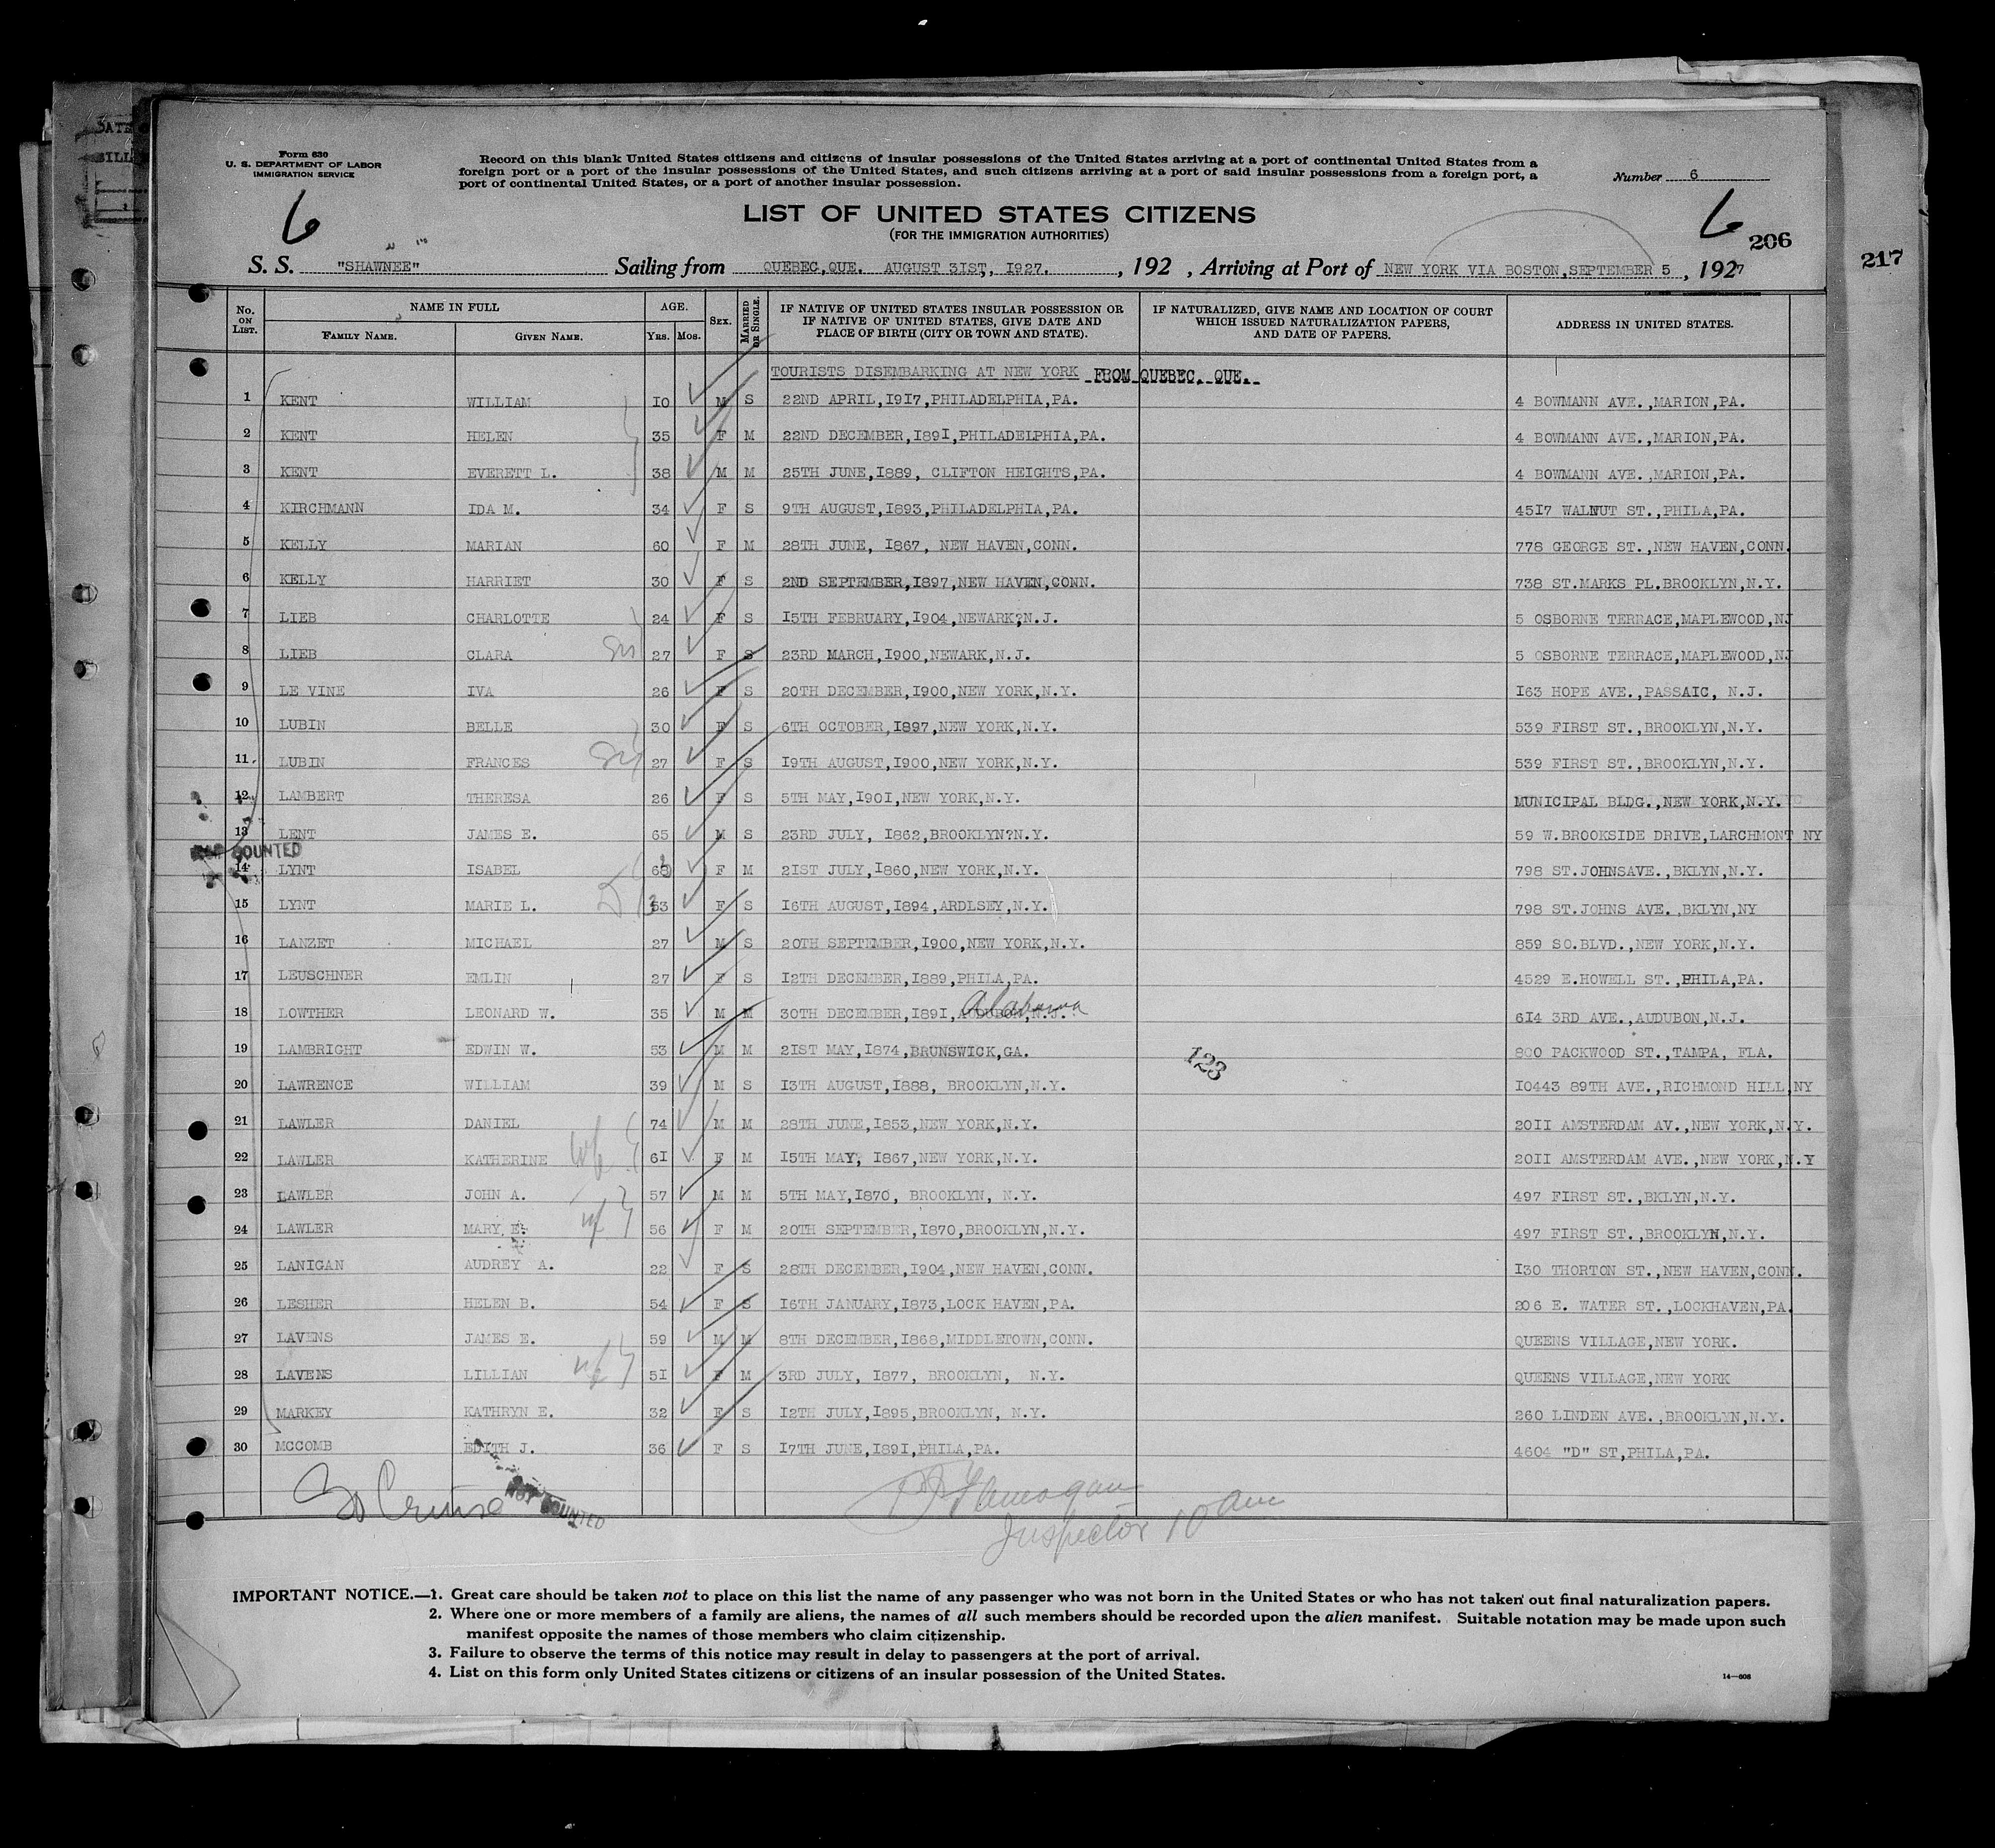 Form 630
U. S. DEPARTMENT OF LABOR
IMMIGRATION SERVICE
Record on this blank United States citizens and citizens of insular possessions of the United States arriving at a port of continental United States from a
foreign port or a port of the insular possessions of the United States, and such citizens arriving at a port of said insular possessions from a foreign port, a
port of continental United States, or a port of another insular possession.
Number 6
6
6
LIST OF UNITED STATES CITIZENS
(FOR THE IMMIGRATION AUTHORITIES)
206
217
S. S. "SHAWNEE" Sailing from QUEBEC,QUE. AUGUST 31ST, 1927. , 192 , Arriving at Port of NEW YORK VIA BOSTON,SEPTEMBER 5 , 1927
No. ON LIST. NAME IN FULL FAMILY NAME. GIVEN NAME. AGE. YRS. MOS. SEX. MARRIED OR SINGLE. IF NATIVE OF UNITED STATES INSULAR POSSESSION OR IF NATIVE OF UNITED STATES, GIVE DATE AND PLACE OF BIRTH (CITY OR TOWN AND STATE). IF NATURALIZED, GIVE NAME AND LOCATION OF COURT WHICH ISSUED NATURALIZATION PAPERS, AND DATE OF PAPERS. ADDRESS IN UNITED STATES.
TOURISTS DISEMBARKING AT NEW YORK FROM QUEBEC. QUE.
1 KENT WILLIAM 10 M S 22ND APRIL,1917,PHILADELPHIA,PA. 4 BOWMANN AVE.,MARION,PA.
2 KENT HELEN 35 F M 22ND DECEMBER,1891,PHILADELPHIA,PA. 4 BOWMANN AVE.,MARION,PA.
3 KENT EVERETT L. 38 M M 25TH JUNE,1889, CLIFTON HEIGHTS,PA. 4 BOWMANN AVE.,MARION,PA.
4 KIRCHMANN IDA M. 34 F S 9TH AUGUST,1893,PHILADELPHIA,PA. 4517 WALNUT ST.,PHILA,PA.
5 KELLY MARIAN 60 F M 28TH JUNE, 1867, NEW HAVEN,CONN. 778 GEORGE ST.,NEW HAVEN,CONN.
6 KELLY HARRIET 30 F S 2ND SEPTEMBER,1897,NEW HAVEN,CONN. 738 ST.MARKS PL.BROOKLYN,N.Y.
7 LIEB CHARLOTTE 24 F S 15TH FEBRUARY,1904,NEWARK?N.J. 5 OSBORNE TERRACE,MAPLEWOOD,NJ
8 LIEB CLARA 27 F S 23RD MARCH,1900,NEWARK,N.J. 5 OSBORNE TERRACE,MAPLEWOOD,NJ
9 LE VINE IVA 26 F S 20TH DECEMBER,1900,NEW YORK,N.Y. 163 HOPE AVE.,PASSAIC, N.J.
10 LUBIN BELLE 30 F S 6TH OCTOBER,1897,NEW YORK,N.Y. 539 FIRST ST.,BROOKLYN,N.Y.
11 LUBIN FRANCES 27 F S 19TH AUGUST,1900,NEW YORK,N.Y. 539 FIRST ST.,BROOKLYN,N.Y.
12 LAMBERT THERESA 26 F S 5TH MAY,1901,NEW YORK,N.Y. MUNICIPAL BLDG.,NEW YORK,N.Y.
13 LENT JAMES E. 65 M S 23RD JULY, 1862,BROOKLYN?N.Y. 59 W.BROOKSIDE DRIVE,LARCHMONT NY
NOT COUNTED
14 LYNT ISABEL F M 21ST JULY,1860,NEW YORK,N.Y. 798 ST.JOHNSAVE.,BKLYN,N.Y.
15 LYNT MARIE L. F S 16TH AUGUST,1894,ARDLSEY,N.Y. 798 ST.JOHNS AVE.,BKLYN,NY
16 LANZET MICHAEL 27 M S 20TH SEPTEMBER,1900,NEW YORK,N.Y. 859 SO.BLVD.,NEW YORK,N.Y.
17 LEUSCHNER EMLIN 27 F S 12TH DECEMBER,1889,PHILA,PA. 4529 E.HOWELL ST.,PHILA,PA.
18 LOWTHER LEONARD W. 35 M M 30TH DECEMBER,1891,AUDUBON,N.J. Alabama 614 3RD AVE.,AUDUBON,N.J.
19 LAMBRIGHT EDWIN W. 53 M M 21ST MAY,1874,BRUNSWICK,GA. 123 800 PACKWOOD ST.,TAMPA, FLA.
20 LAWRENCE WILLIAM 39 M S 13TH AUGUST,1888, BROOKLYN,N.Y. 10443 89TH AVE.,RICHMOND HILL,NY
21 LAWLER DANIEL 74 M M 28TH JUNE,1853,NEW YORK,N.Y. 2011 AMSTERDAM AV.,NEW YORK,N.Y.
22 LAWLER KATHERINE 61 F M 15TH MAY, 1867,NEW YORK,N.Y. 2011 AMSTERDAM AVE.,NEW YORK,N.Y
23 LAWLER JOHN A. 57 M M 5TH MAY,1870, BROOKLYN, N.Y. 497 FIRST ST.,BKLYN,N.Y.
24 LAWLER MARY E. 56 F M 20TH SEPTEMBER,1870,BROOKLYN,N.Y. 497 FIRST ST.,BROOKLYN,N.Y.
25 LANIGAN AUDREY A. 22 F S 28TH DECEMBER,1904,NEW HAVEN,CONN. 130 THORTON ST.,NEW HAVEN,CONN.
26 LESHER HELEN B. 54 F S 16TH JANUARY,1873,LOCK HAVEN,PA. 206 E. WATER ST.,LOCKHAVEN,PA.
27 LAVENS JAMES E. 59 M M 8TH DECEMBER,1868,MIDDLETOWN,CONN. QUEENS VILLAGE,NEW YORK.
28 LAVENS LILLIAN 51 F M 3RD JULY, 1877, BROOKLYN, N.Y. QUEENS VILLAGE,NEW YORK
29 MARKEY KATHRYN E. 32 F S 12TH JULY,1895,BROOKLYN, N.Y. 260 LINDEN AVE.,BROOKLYN,N.Y.
30 MCCOMB EDITH J. 36 F S 17TH JUNE,1891,PHILA,PA. 4604 "D" ST,PHILA,PA.
Cruise NOT COUNTED
Inspector 10 am
IMPORTANT NOTICE.—1. Great care should be taken not to place on this list the name of any passenger who was not born in the United States or who has not taken out final naturalization papers.
2. Where one or more members of a family are aliens, the names of all such members should be recorded upon the alien manifest. Suitable notation may be made upon such
manifest opposite the names of those members who claim citizenship.
3. Failure to observe the terms of this notice may result in delay to passengers at the port of arrival.
4. List on this form only United States citizens or citizens of an insular possession of the United States.
14—608